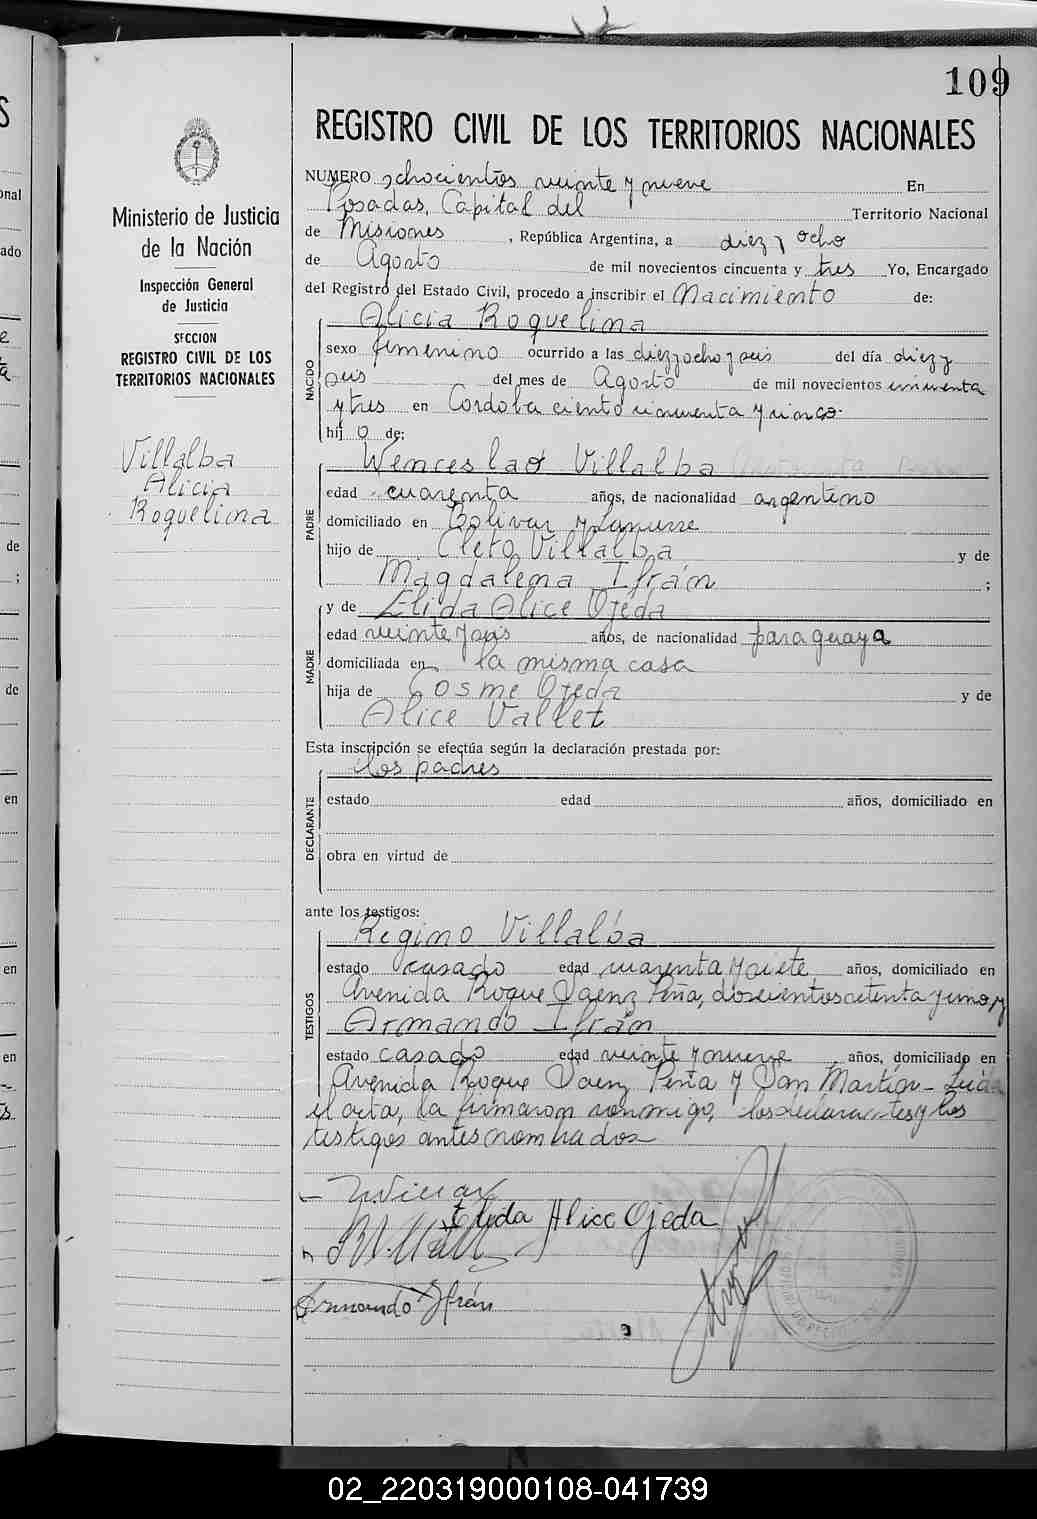 109
REGISTRO CIVIL DE LOS TERRITORIOS NACIONALES
Ministerio de Justicia
de la Nación
Inspección General
de Justicia
SECCION
REGISTRO CIVIL DE LOS
TERRITORIOS NACIONALES
Villalba
Alicia
Roquelina
NUMERO ochocientos veinte y nueve En
Posadas, Capital del Territorio Nacional
de Misiones, República Argentina, a diez y ocho
de Agosto de mil novecientos cincuenta y tres Yo, Encargado
del Registro del Estado Civil, procedo a inscribir el Nacimiento de:
NACIDO
Alicia Roquelina
sexo femenino ocurrido a las diez y ocho y seis del día diez y
seis del mes de Agosto de mil novecientos cincuenta
y tres en Córdoba ciento cincuenta y cinco.
hij a de:
PADRE
Wenceslao Villalba
edad cuarenta años, de nacionalidad argentino
domiciliado en Bolivar y
hijo de Cleto Villalba y de
Magdalena Ifrán ;
MADRE
y de Elida Alice Ojeda
edad veinte y seis años, de nacionalidad paraguaya
domiciliada en la misma casa
hija de Cosme Ojeda y de
Alice Vallet
Esta inscripción se efectúa según la declaración prestada por:
los padres
DECLARANTE
estado edad años, domiciliado en
obra en virtud de
ante los testigos:
TESTIGOS
Regino Villalba
estado casado edad cuarenta y siete años, domiciliado en
Avenida Roque Saenz Peña, doscientos setenta y uno, y
Armando Ifrán
estado casado edad veinte y nueve, años, domiciliado en
Avenida Roque Saenz Peña y San Martín - Leída
el acta, la firmaron conmigo, los declarantes y los
testigos antes nombrados
Elida Alice Ojeda
Armando Ifrán
02_220319000108-041739